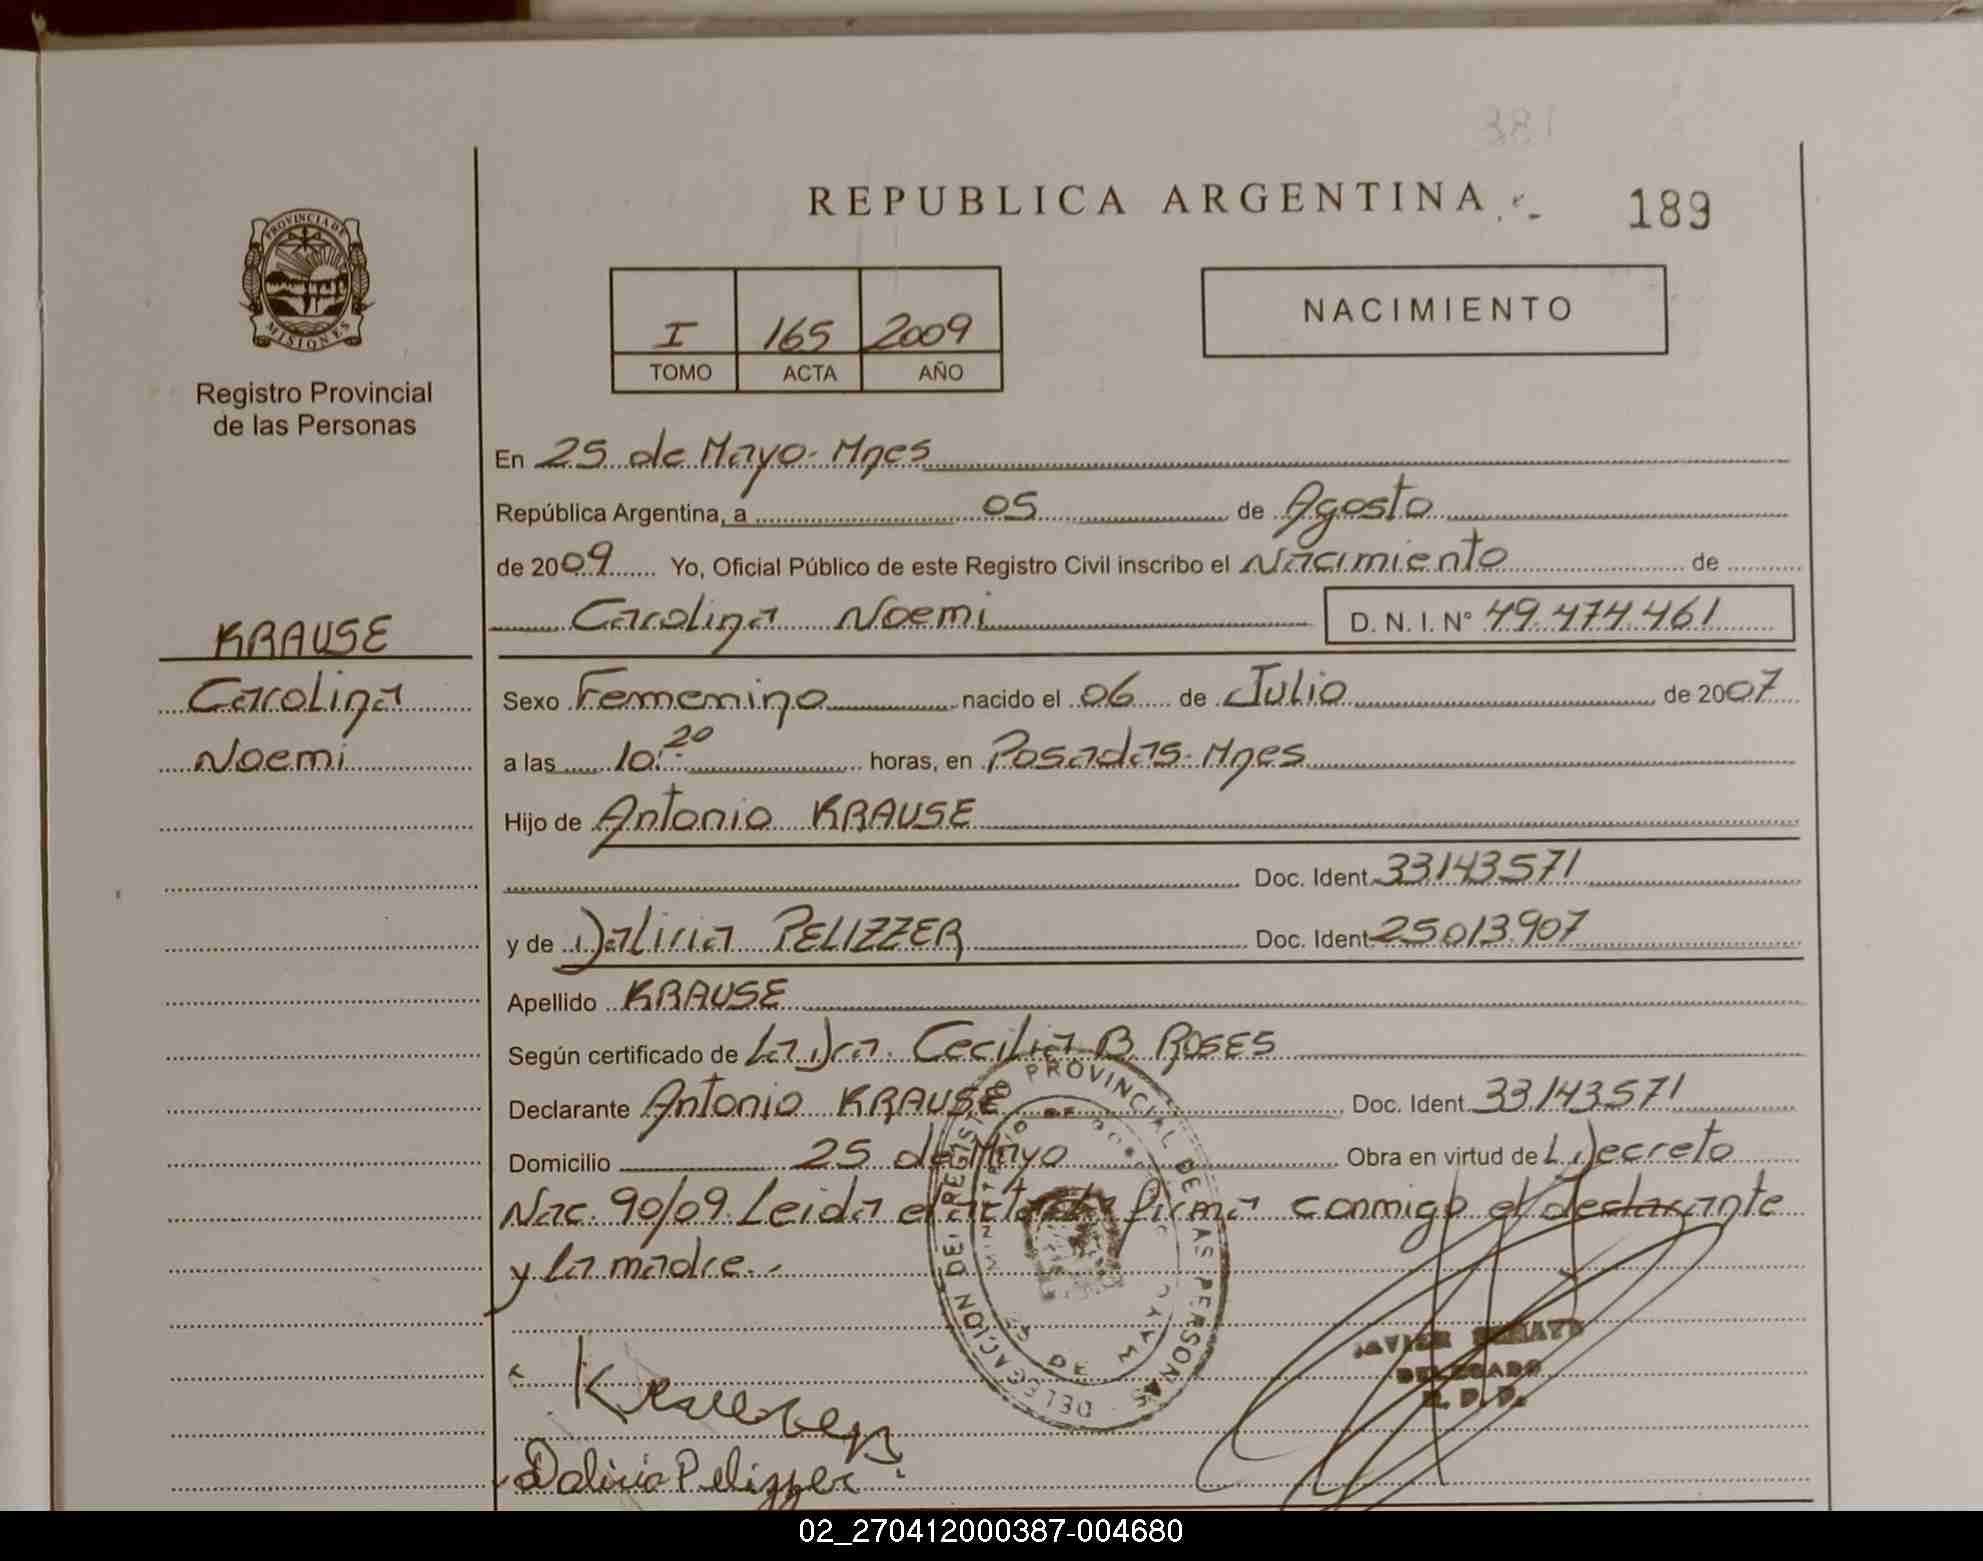 REPUBLICA ARGENTINA
189
PROVINCIA DE MISIONES
Registro Provincial
de las Personas
I 165 2009
TOMO ACTA AÑO
NACIMIENTO
En 25 de Mayo - Mnes
República Argentina, a 05 de Agosto
de 2009 Yo, Oficial Público de este Registro Civil inscribo el Nacimiento de
Carolina Noemi D. N. I. N° 49.474.461
KRAUSE
Carolina
Noemi
Sexo Femenino nacido el 06 de Julio de 2007
a las 10:20 horas, en Posadas - Mnes
Hijo de Antonio KRAUSE
Doc. Ident. 33143571
y de Dalicia PELIZZER Doc. Ident. 25013907
Apellido KRAUSE
Según certificado de La Dra. Cecilia B. ROSES
Declarante Antonio KRAUSE Doc. Ident. 33143571
Domicilio 25 de Mayo Obra en virtud de L Decreto
Nac. 90/09. Leida el acta la firma conmigo el declarante
y la madre.-
DELEGACION DEL REGISTRO PROVINCIAL DE LAS PERSONAS
25 DE MAYO
JAVIER
DELEGADO
Dalicia Pelizzer
02_270412000387-004680